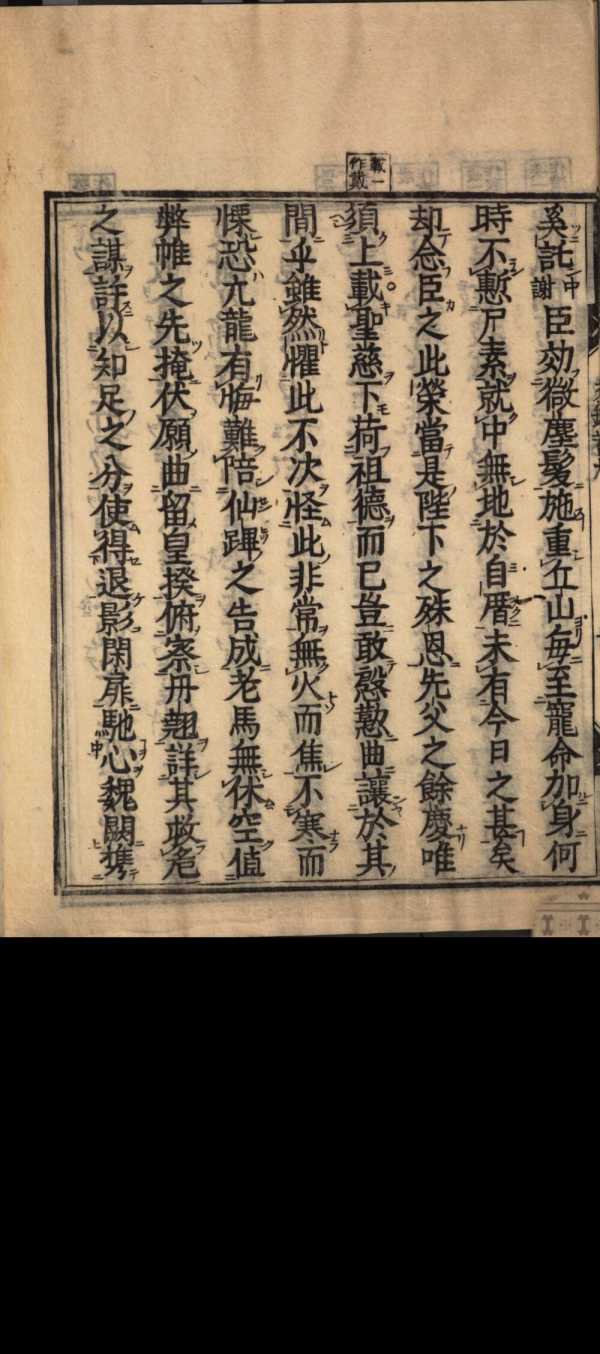 載一作戴
奚託中謝臣効微塵髪施重丘山毎至寵命加身何
時不慙尸素就中無地於自厝未有今日之甚矣
却念臣之此榮當是陛下之殊恩先父之餘慶唯
須上載聖慈下荷祖德而已豈敢慇懃曲讓於其
間乎雖然懼此不次怪此非常無火而焦不寒而
慄恐亢龍有悔難陪仙蹕之告成老馬無休空値
弊帷之先掩伏願曲留皇揆俯察丹䞇詳其救危
之謀許以知足之分使得退影閑扉馳心魏闕携